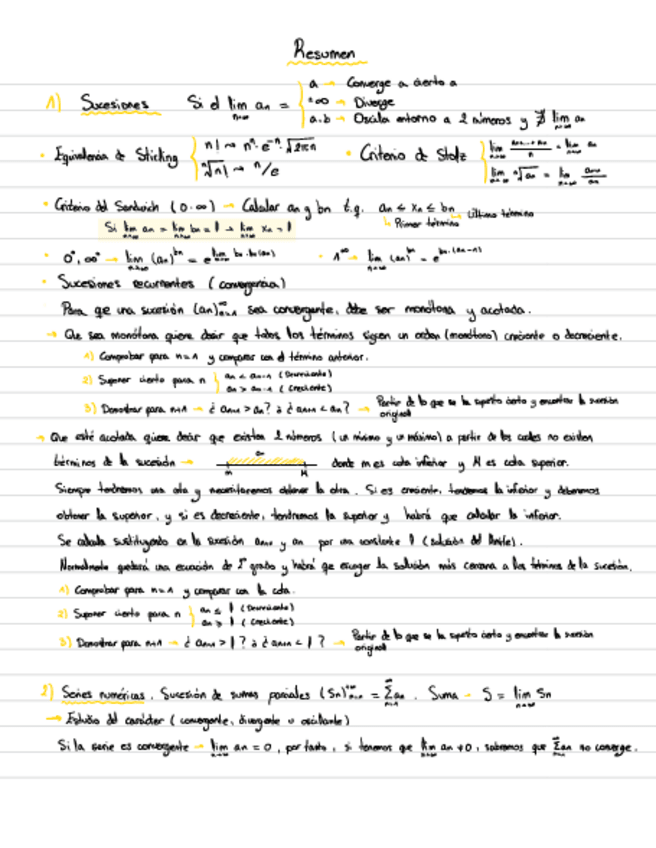 Resumen
1) Sucesiones Si el lim an = a → Converge a cierto a
n→∞ ±∞ → Diverge
a.b → Oscila entorno a 2 números y ∄ lim an
• Equivalencia de Stirling n! ~ nⁿ·e⁻ⁿ·√2πn • Criterio de Stolz
ⁿ√n! ~ n/e lim ⁿ√an = lim
• Criterio del Sandwich (0·∞) → Calcular an y bn t.q. an ≤ xn ≤ bn Último término
Primer término
Si lim an = lim bn = l → lim xn = l
• 0⁰, ∞⁰ → lim (an)^bn = e^lim bn·ln(an) • 1^∞ → lim (an)^bn = e^bn·(an-1)
• Sucesiones recurrentes (convergencia)
Para qe una sucesión (an) sea convergente, debe ser monótona y acotada.
→ Qe sea monótona quiere decir que todos los términos siguen un orden (monótono) creciente o decreciente.
1) Comprobar para n=1 y comparar con el término anterior.
2) Suponer cierto para n an < an-1 (Decreciente)
an > an-1 (Creciente)
3) Demostrar para n+1 → ¿ an+1 > an? ó ¿ an+1 < an? → Partir de lo que se ha supuesto cierto y encontrar la sucesión
original
→ Que esté acotada quiere decir que existen 2 números (un mínimo y un máximo) a partir de los cuales no existen
términos de la sucesión → an m M donde m es cota inferior y M es cota superior.
Siempre tendremos una cota y necesitaremos obtener la otra. Si es creciente, tenemos la inferior y debemos
obtener la superior, y si es decreciente, tendremos la superior y habrá que calcular la inferior.
Se calcula sustituyendo en la sucesión an+1 y an por una constante l (solución del límite).
Normalmente quedará una ecuación de 2º grado y habrá que escoger la solución más cercana a los términos de la sucesión.
1) Comprobar para n=1 y comparar con la cota.
2) Suponer cierto para n an ≤ l (Decreciente)
an > l (Creciente)
3) Demostrar para n+1 → ¿ an+1 > l? ó ¿ an+1 < l? → Partir de lo que se ha supuesto cierto y encontrar la sucesión
original
2) Series numéricas. Sucesión de sumas parciales (Sn) = Σan. Suma → S = lim Sn
→ Estudio del carácter (convergente, divergente u oscilante)
Si la serie es convergente → lim an = 0, por tanto, si tenemos que lim an ≠ 0, sabremos que Σan no converge.